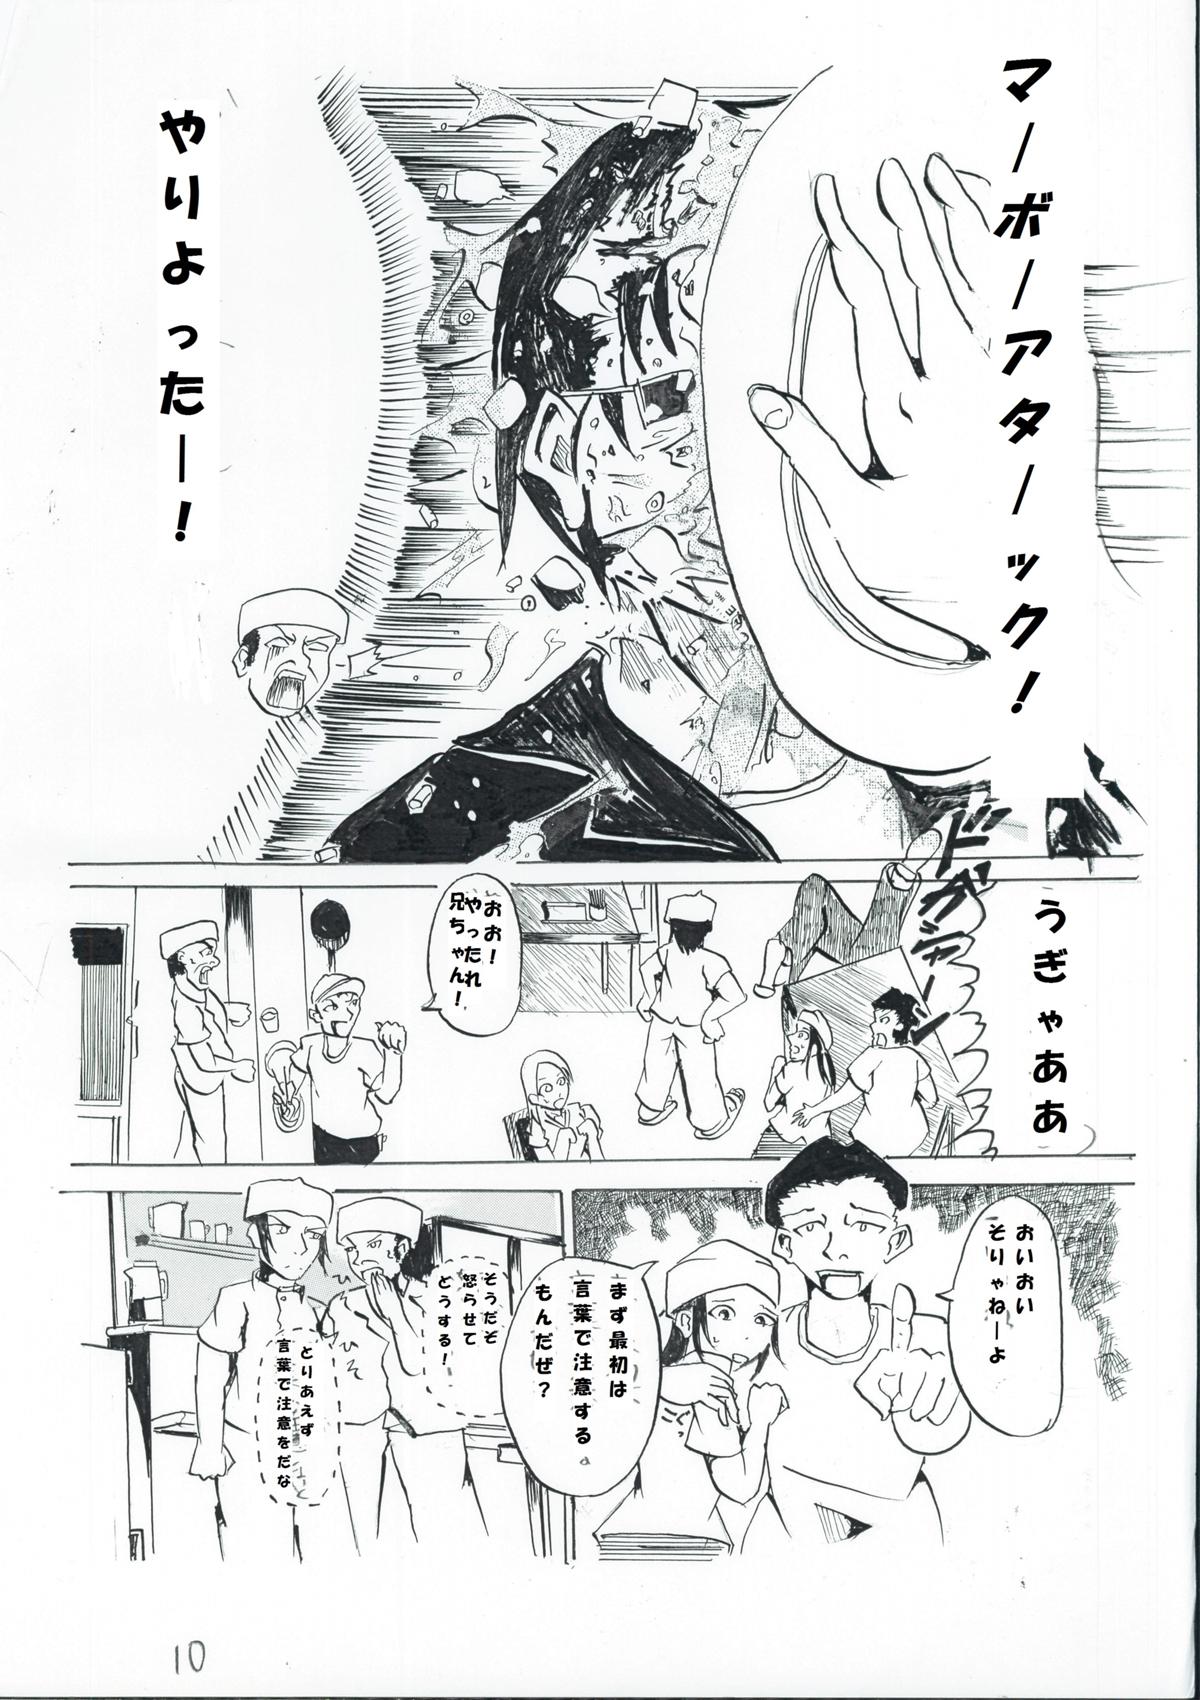 マーボーアターック！
やりよったー！
ドガシャーン
うぎゃああ
おお！
やったれ
兄ちゃん！
おいおい
そりゃねーよ
まず最初は
言葉で注意する
もんだぜ？
そうだぞ
怒らせて
どうする！
ひそ
とりあえず
言葉で注意をだな
10